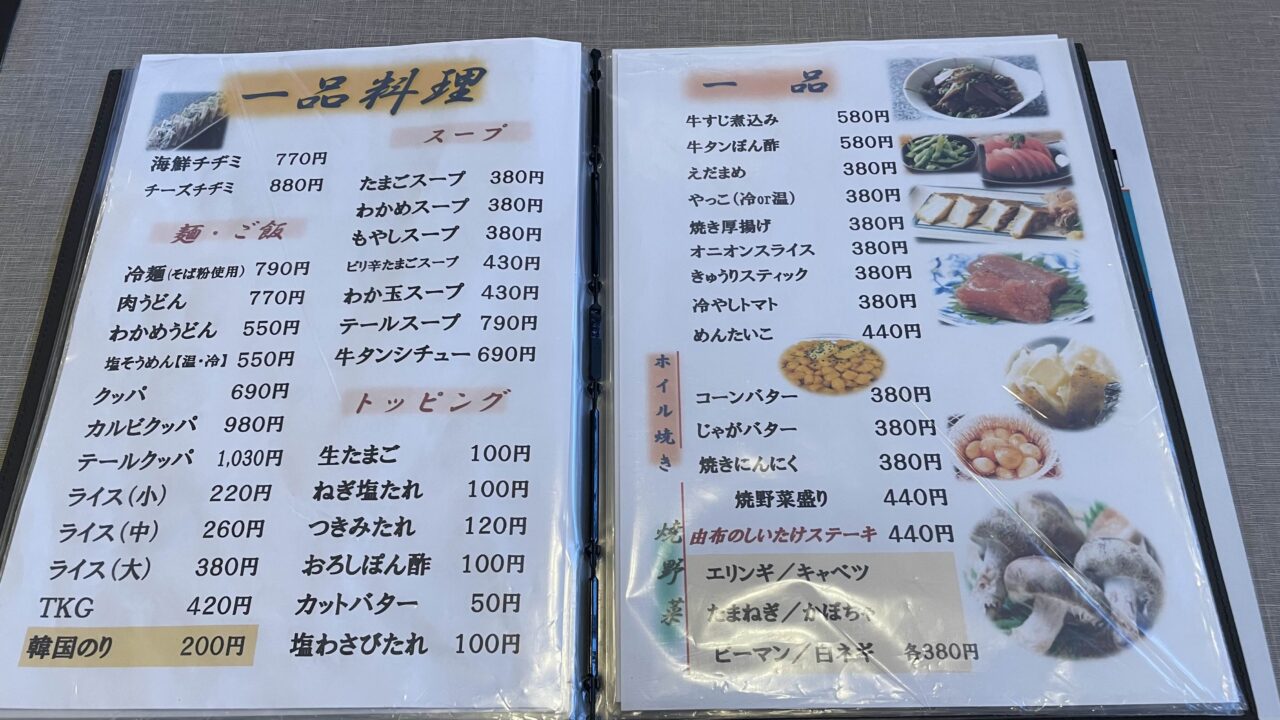 一品料理
海鮮チヂミ 770円
チーズチヂミ 880円
麺・ご飯
冷麺(そば粉使用) 790円
肉うどん 770円
わかめうどん 550円
塩そうめん【温・冷】 550円
クッパ 690円
カルビクッパ 980円
テールクッパ 1,030円
ライス(小) 220円
ライス(中) 260円
ライス(大) 380円
TKG 420円
韓国のり 200円
スープ
たまごスープ 380円
わかめスープ 380円
もやしスープ 380円
ピリ辛たまごスープ 430円
わか玉スープ 430円
テールスープ 790円
牛タンシチュー 690円
トッピング
生たまご 100円
ねぎ塩たれ 100円
つきみたれ 120円
おろしぽん酢 100円
カットバター 50円
塩わさびたれ 100円
一品
牛すじ煮込み 580円
牛タンぽん酢 580円
えだまめ 380円
やっこ(冷or温) 380円
焼き厚揚げ 380円
オニオンスライス 380円
きゅうりスティック 380円
冷やしトマト 380円
めんたいこ 440円
ホイル焼き
コーンバター 380円
じゃがバター 380円
焼きにんにく 380円
焼野菜
焼野菜盛り 440円
由布のしいたけステーキ 440円
エリンギ/キャベツ
たまねぎ/かぼちゃ
ピーマン/白ネギ 各380円